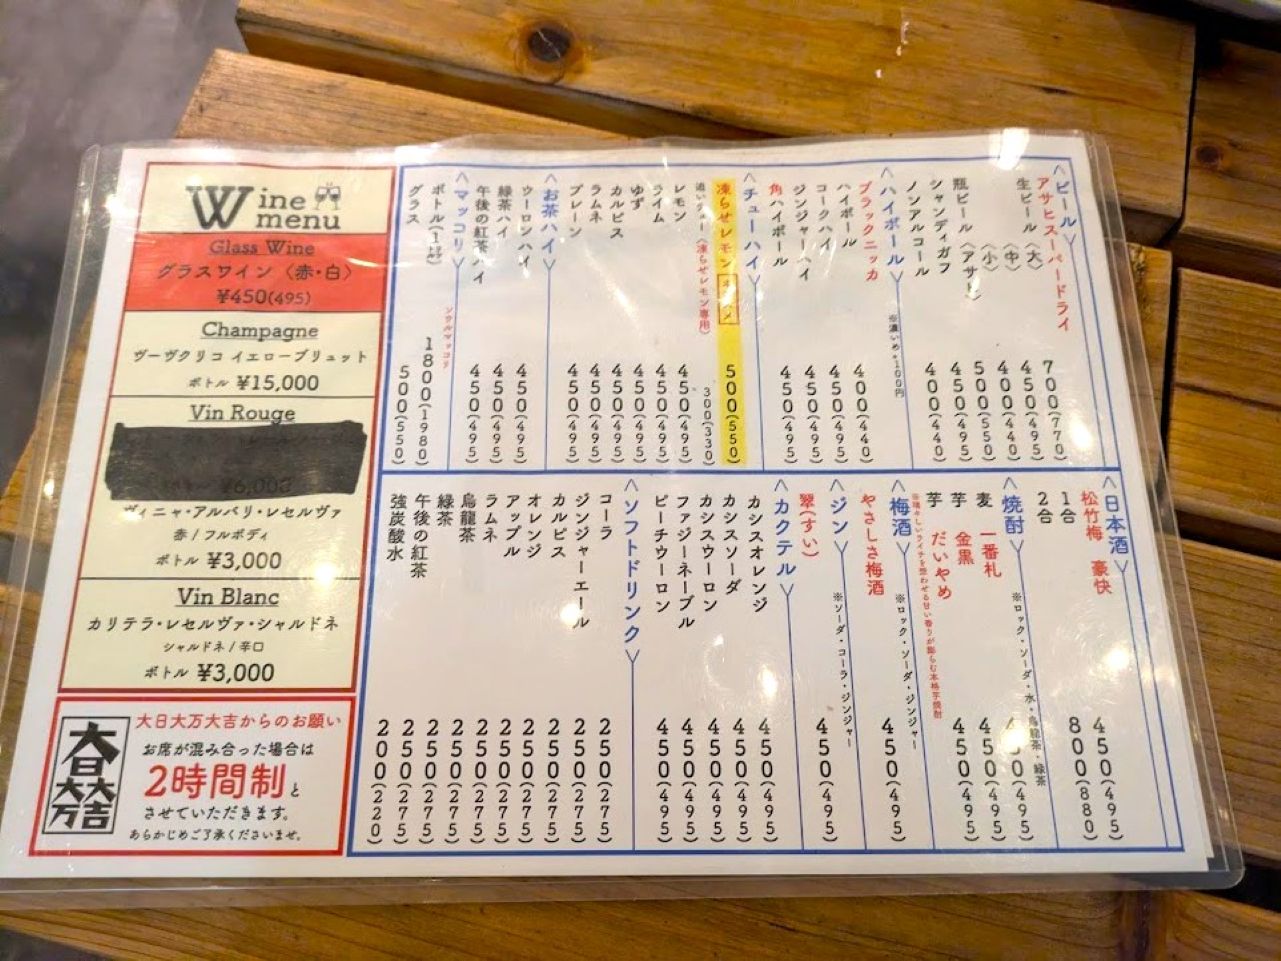 Wine menu
Glass Wine
グラスワイン〈赤・白〉
¥450(495)
Champagne
ヴーヴクリコ イエローブリュット
ボトル ¥15,000
Vin Rouge
¥6,000
ヴィニャ・アルバリ・レセルヴァ
赤/フルボディ
ボトル ¥3,000
Vin Blanc
カリテラ・レセルヴァ・シャルドネ
シャルドネ/辛口
ボトル ¥3,000
大日大万大吉
大日大万大吉からのお願い
お席が混み合った場合は
2時間制と
させていただきます。
あらかじめご了承くださいませ。
〈ビール〉
アサヒスーパードライ
生ビール〈大〉 700(770)
〈中〉 450(495)
〈小〉 400(440)
瓶ビール〈アサヒ〉 500(550)
シャンディガフ 450(495)
ノンアルコール 400(440)
〈ハイボール〉 ※濃いめ+100円
ブラックニッカ
ハイボール 400(440)
ジンジャーハイ 450(495)
コークハイ 450(495)
角ハイボール 450(495)
〈チューハイ〉
凍らせレモン オススメ 500(550)
追いチュー〈凍らせレモン専用〉 300(330)
レモン 450(495)
ライム 450(495)
ゆず 450(495)
カルピス 450(495)
ラムネ 450(495)
プレーン 450(495)
〈お茶ハイ〉
ウーロンハイ 450(495)
緑茶ハイ 450(495)
午後の紅茶ハイ 450(495)
〈マッコリ〉 ソウルマッコリ
ボトル(1㍑) 1800(1980)
グラス 500(550)
〈日本酒〉
松竹梅 豪快
1合 450(495)
2合 800(880)
〈焼酎〉 ※ロック・ソーダ・水・烏龍茶・緑茶
麦 一番札 450(495)
芋 金黒 450(495)
芋 だいやめ 450(495)
※瑞々しいライチを想わせる甘い香りが膨らむ本格芋焼酎
〈梅酒〉 ※ロック・ソーダ・ジンジャー
やさしさ梅酒 450(495)
〈ジン〉 ※ソーダ・コーラ・ジンジャー
翠(すい) 450(495)
〈カクテル〉
カシスオレンジ 450(495)
カシスソーダ 450(495)
カシスウーロン 450(495)
ファジーネーブル 450(495)
ピーチウーロン 450(495)
〈ソフトドリンク〉
コーラ 250(275)
ジンジャーエール 250(275)
カルピス 250(275)
オレンジ 250(275)
アップル 250(275)
ラムネ 250(275)
烏龍茶 250(275)
緑茶 250(275)
午後の紅茶 250(275)
強炭酸水 200(220)